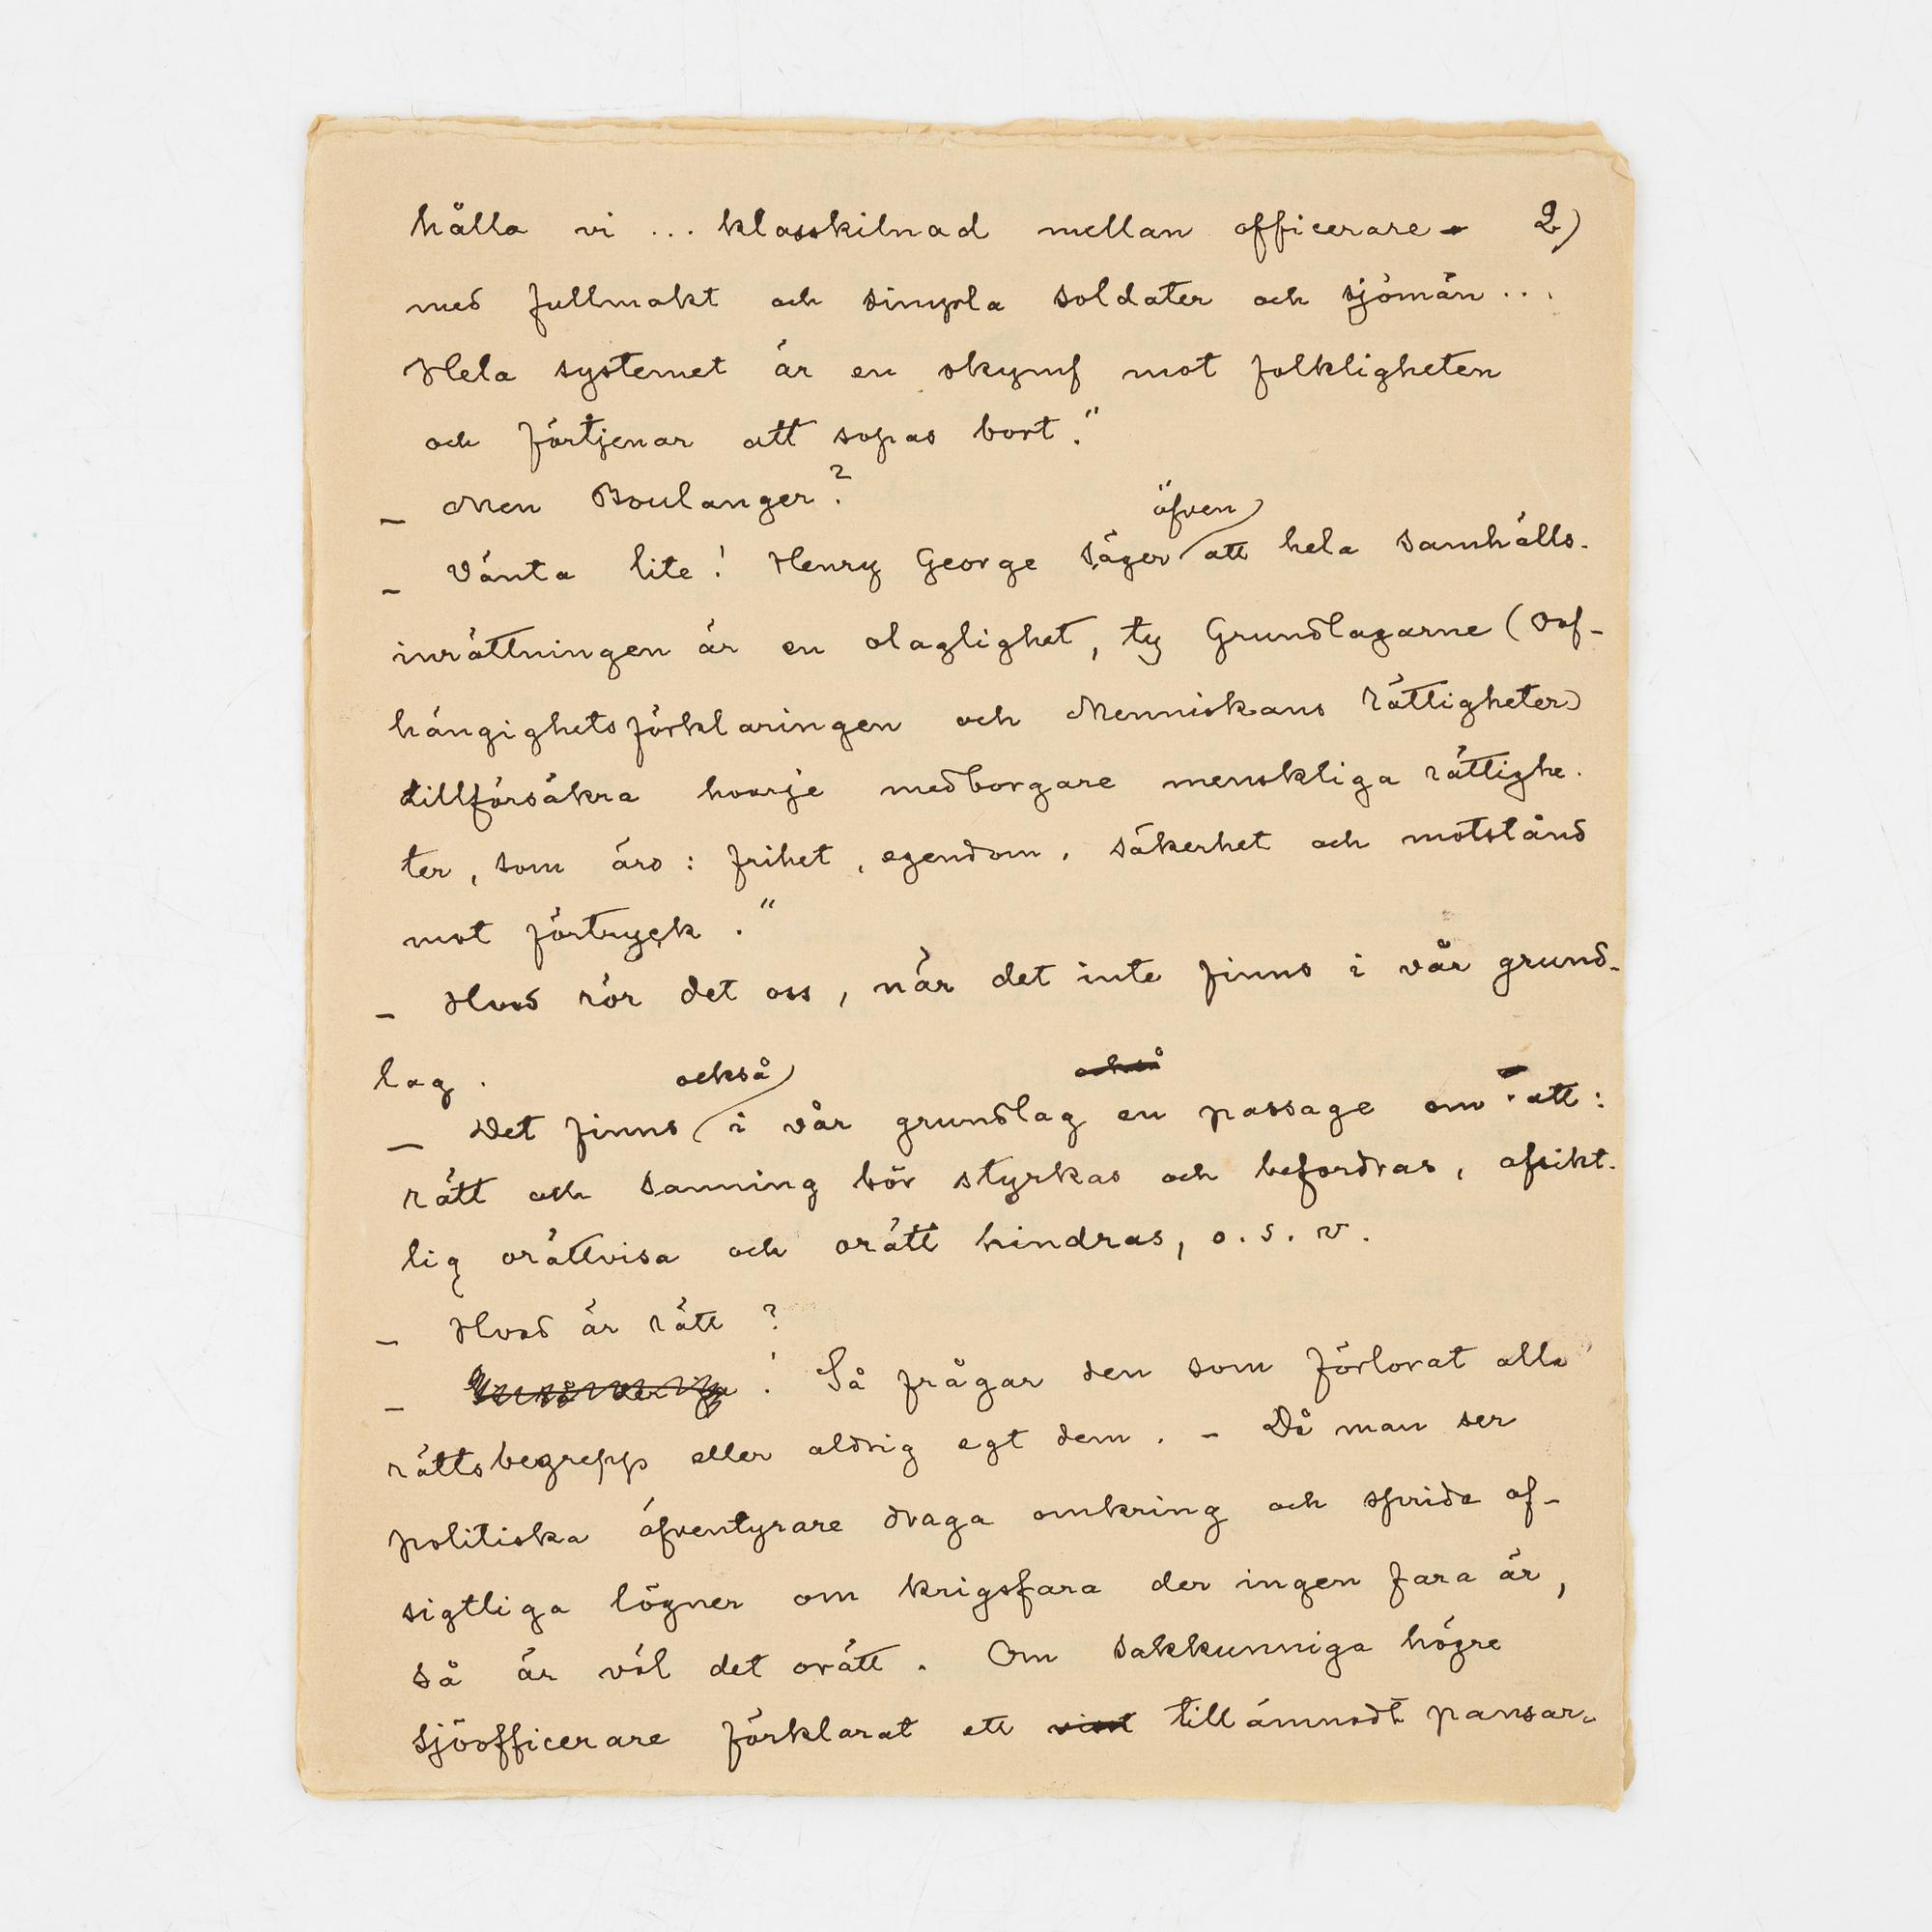 hålla vi ... klasskilnad mellan officerare 2)
med fullmakt och simpla soldater och sjömän ...
Hela systemet är en skymf mot folkligheten
och förtjenar att sopas bort."
– Men Boulanger?
äfven
– Vänta lite! Henry George säger att hela samhälls-
inrättningen är en olaglighet, ty Grundlagarne (Oaf-
hängighetsförklaringen och Menniskans rättigheter)
tillförsäkra hvarje medborgare menskliga rättighe-
ter, som äro: frihet, egendom, säkerhet och motstånd
mot förtryck."
– Hvad rör det oss, när det inte finns i vår grund-
lag.
också också
– Det finns i vår grundlag en passage om att:
rätt och sanning bör styrkas och befordras, afsikt-
lig orättvisa och orätt hindras, o.s.v.
– Hvad är rätt?
– ! Så frågar den som förlorat alla
rättsbegrepp eller aldrig egt dem. – Då man ser
politiska äfventyrare draga omkring och sprida af-
sigtliga lögner om krigsfara der ingen fara är,
så är väl det orätt. Om sakkunniga högre
sjöofficerare förklarat ett visst tillämnadt pansar-